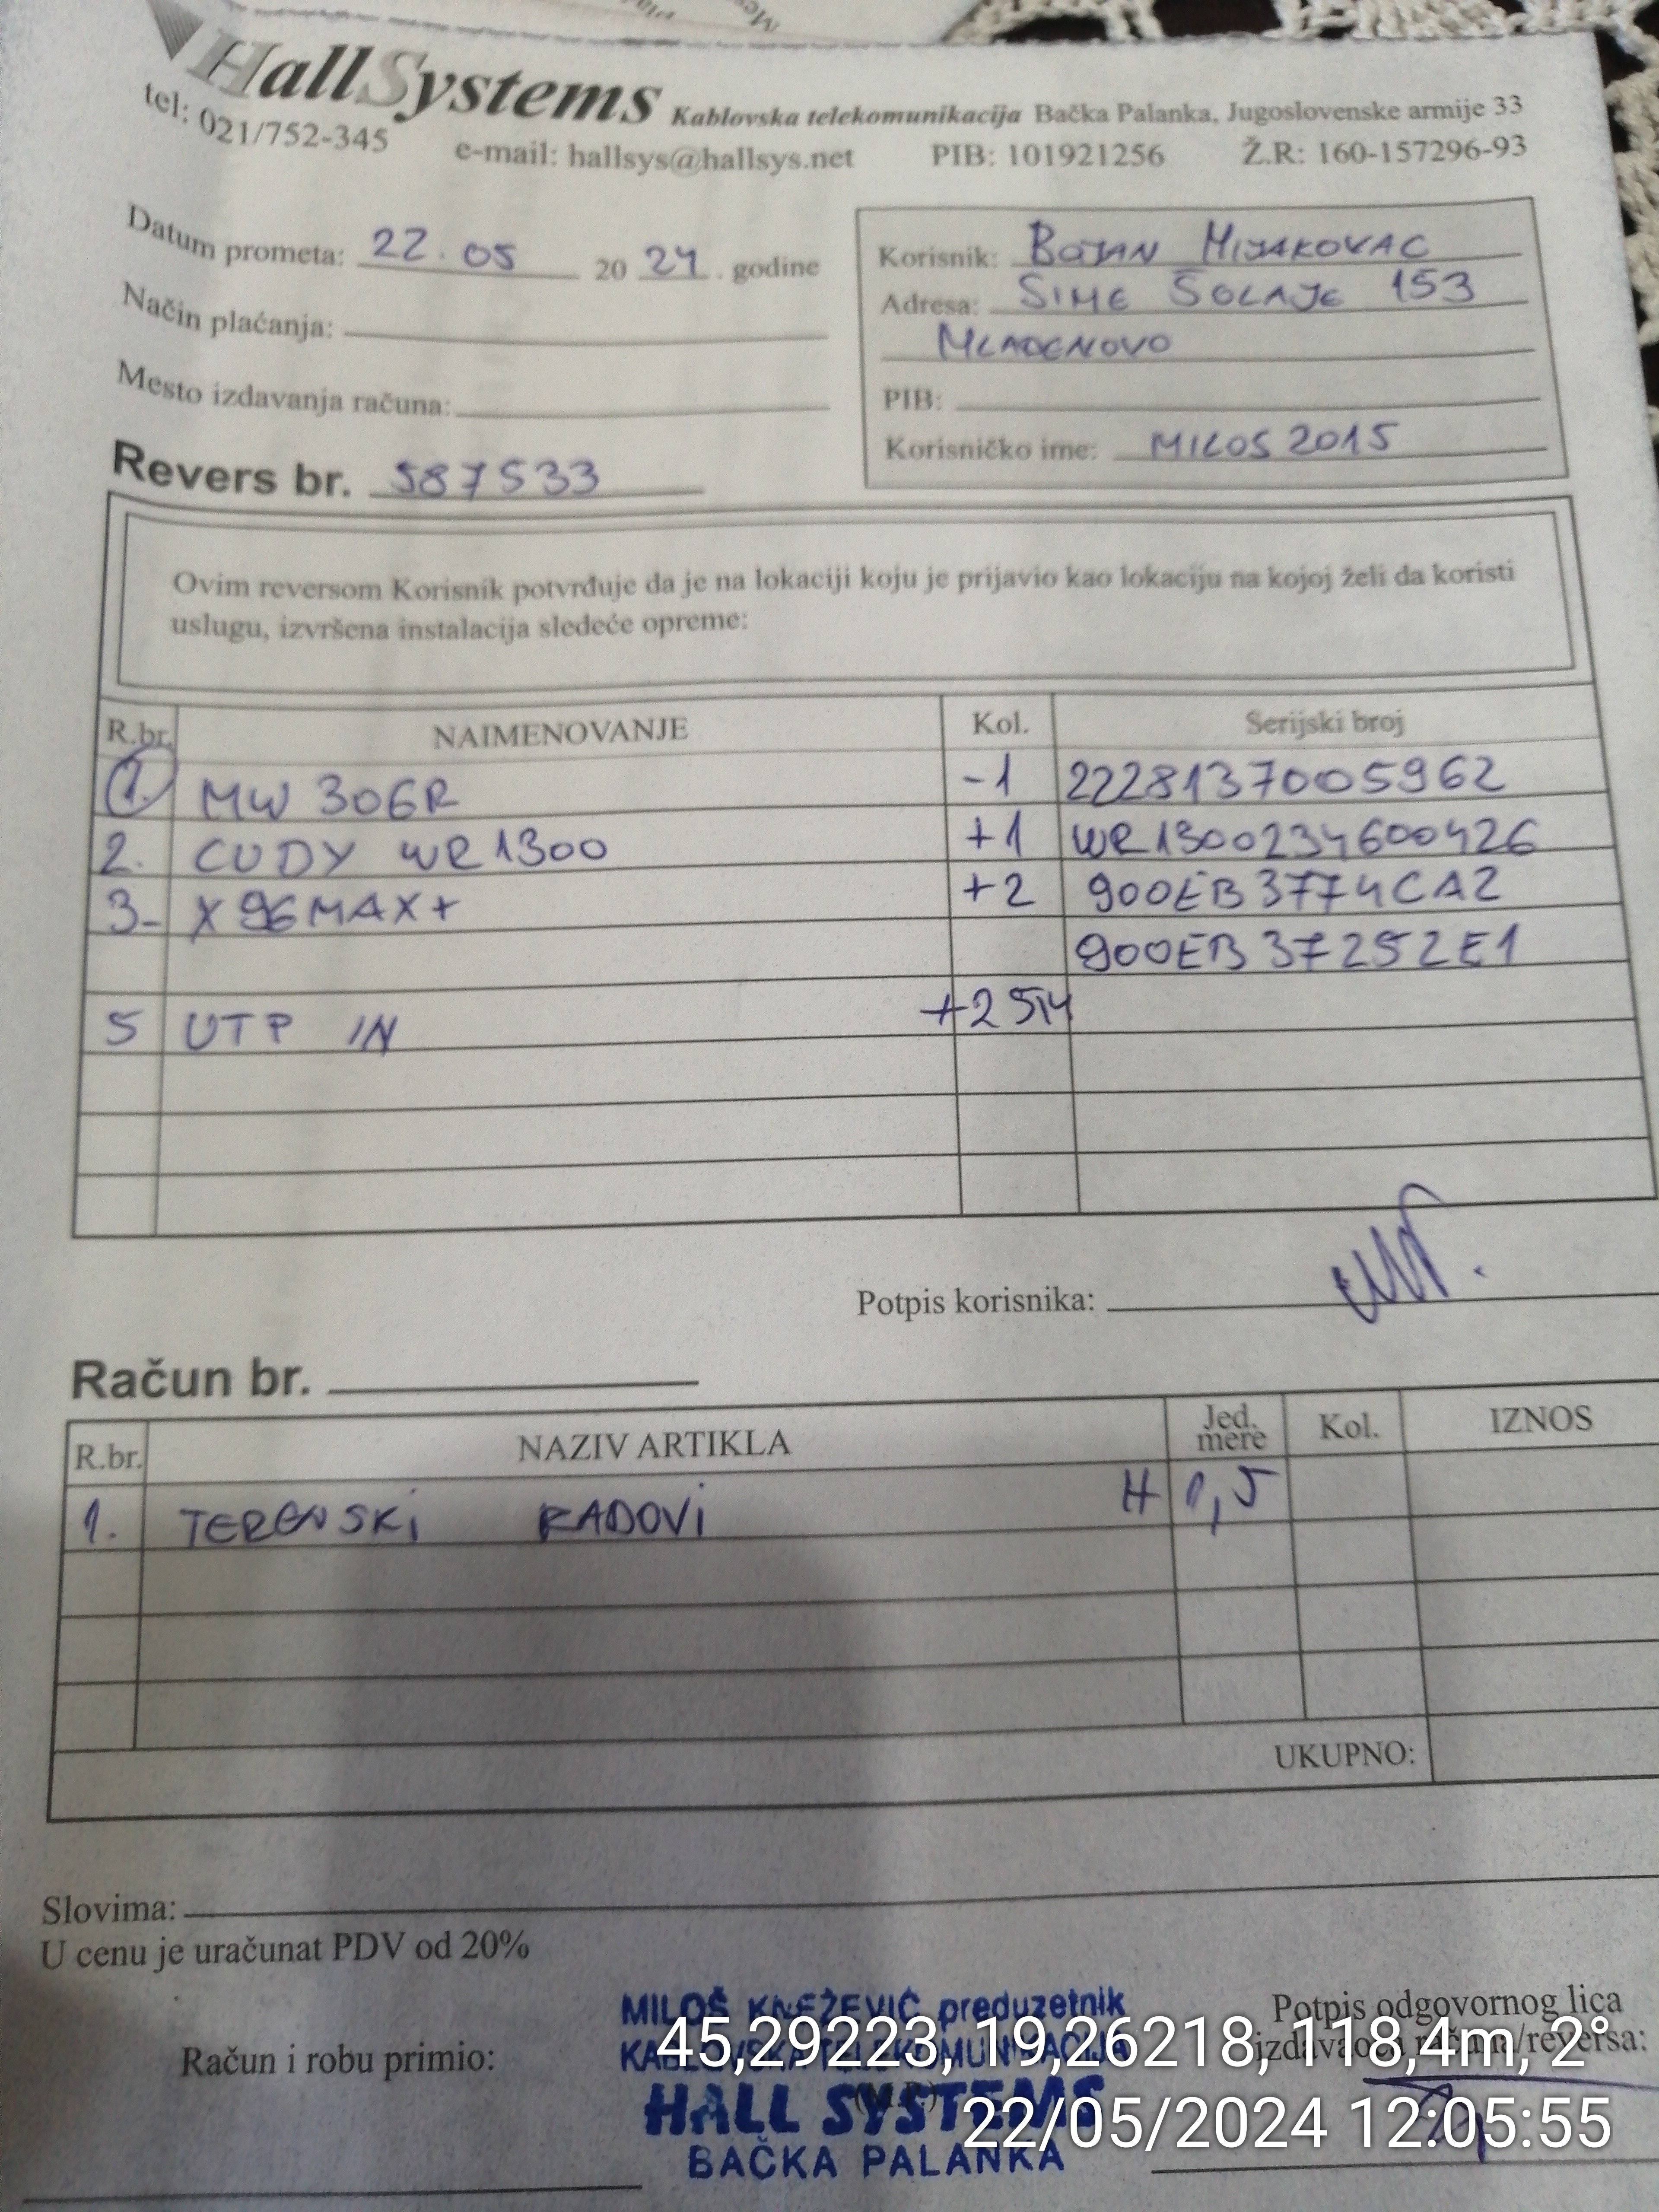 HallSystems Kablovska telekomunikacija Bačka Palanka, Jugoslovenske armije 33
tel: 021/752-345 e-mail: hallsys@hallsys.net PIB: 101921256 Ž.R: 160-157296-93
Datum prometa: 22.05 2024. godine
Način plaćanja:
Mesto izdavanja računa:
Korisnik: BOJAN MIJAKOVAC
Adresa: SIME ŠOLAJE 153
MLADENOVO
PIB:
Korisničko ime: MILOS2015
Revers br. 587533
Ovim reversom Korisnik potvrđuje da je na lokaciji koju je prijavio kao lokaciju na kojoj želi da koristi
uslugu, izvršena instalacija sledeće opreme:
R.br. NAIMENOVANJE Kol. Serijski broj
1. MW 306R -1 2228137005962
2. CUDY WR1300 +1 WR1300234600426
3- X96MAX+ +2 900EB3774CA2
900EB37252E1
5 UTP IN +25M
Potpis korisnika:
Račun br.
R.br. NAZIV ARTIKLA Jed. mere Kol. IZNOS
1. TERENSKi RADOVi H 1,5
UKUPNO:
Slovima:
U cenu je uračunat PDV od 20%
MILOŠ KNEŽEVIĆ preduzetnik
KABLOVSKA TELEKOMUNIKACIJA
HALL SYSTEMS
BAČKA PALANKA
Račun i robu primio:
(M.P.)
Potpis odgovornog lica
izdavaoca računa/reversa:
45,29223, 19,26218, 118,4m, 2°
22/05/2024 12:05:55